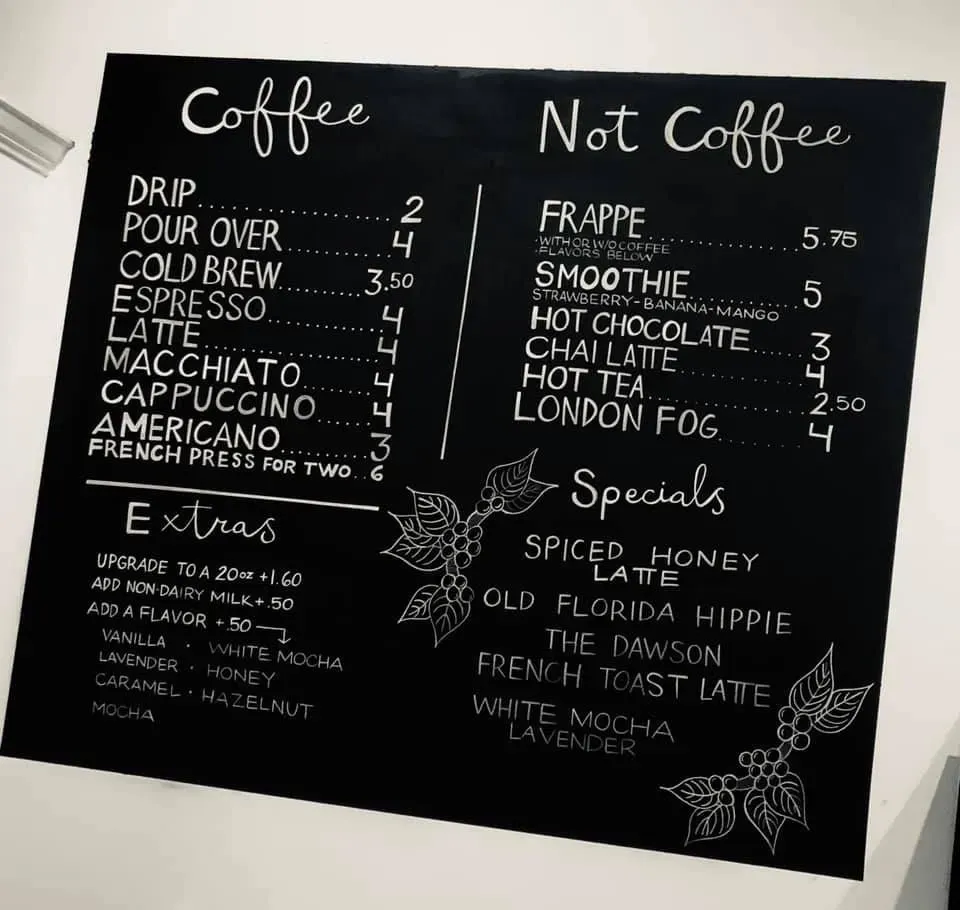 Coffee
DRIP.................... 2
POUR OVER............ 4
COLD BREW.......... 3.50
ESPRESSO............. 4
LATTE.................... 4
MACCHIATO.......... 4
CAPPUCCINO........ 4
AMERICANO.......... 3
FRENCH PRESS FOR TWO.. 6
Extras
UPGRADE TO A 20oz +1.60
ADD NON-DAIRY MILK +.50
ADD A FLAVOR +.50
VANILLA · WHITE MOCHA
LAVENDER · HONEY
CARAMEL · HAZELNUT
MOCHA
Not Coffee
FRAPPE............... 5.75
·WITH OR W/O COFFEE
·FLAVORS BELOW
SMOOTHIE............ 5
STRAWBERRY-BANANA-MANGO
HOT CHOCOLATE...... 3
CHAI LATTE............ 4
HOT TEA............... 2.50
LONDON FOG.......... 4
Specials
SPICED HONEY
LATTE
OLD FLORIDA HIPPIE
THE DAWSON
FRENCH TOAST LATTE
WHITE MOCHA
LAVENDER